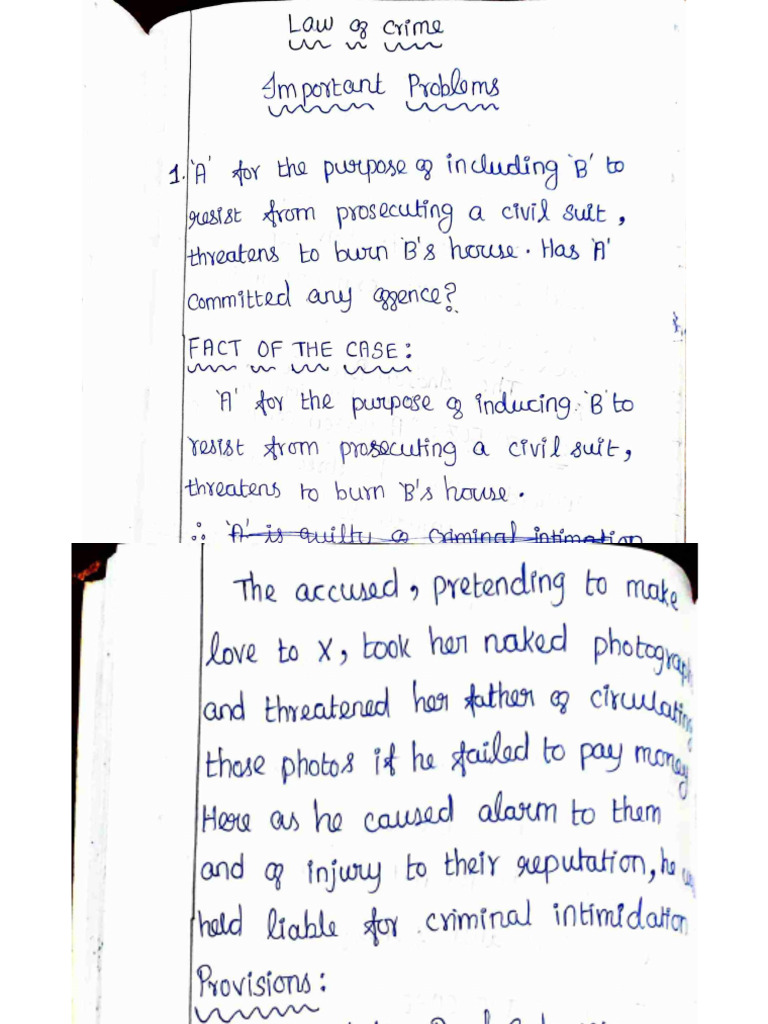 Law of crime
Important Problems
1. 'A' for the purpose of including 'B' to
resist from prosecuting a civil suit,
threatens to burn 'B's house. Has 'A'
Committed any offence?
FACT OF THE CASE:
'A' for the purpose of inducing 'B' to
resist from prosecuting a civil suit,
threatens to burn 'B's house.
∴ 'A' is guilty of criminal intimation
The accused, pretending to make
love to X, took her naked photograph
and threatened her father of circulating
those photos if he failed to pay money
Here as he caused alarm to them
and of injury to their reputation, he
held liable for criminal intimidation
Provisions: